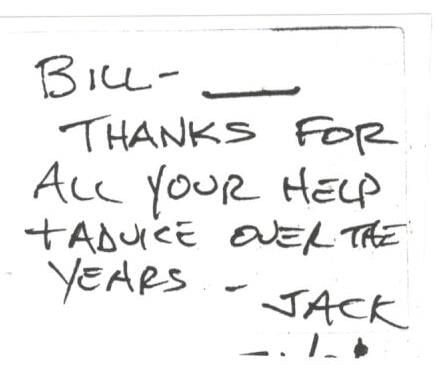 BILL- ___
THANKS FOR
ALL YOUR HELP
+ ADVICE OVER THE
YEARS -
JACK